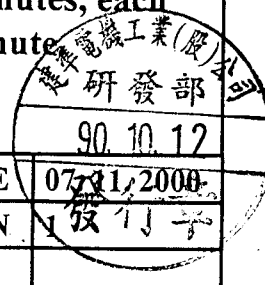 nutes, each
nute
建準電機工業(股)公司
研發部
90. 10. 12
E 07. 11, 2000
發行章
N 1